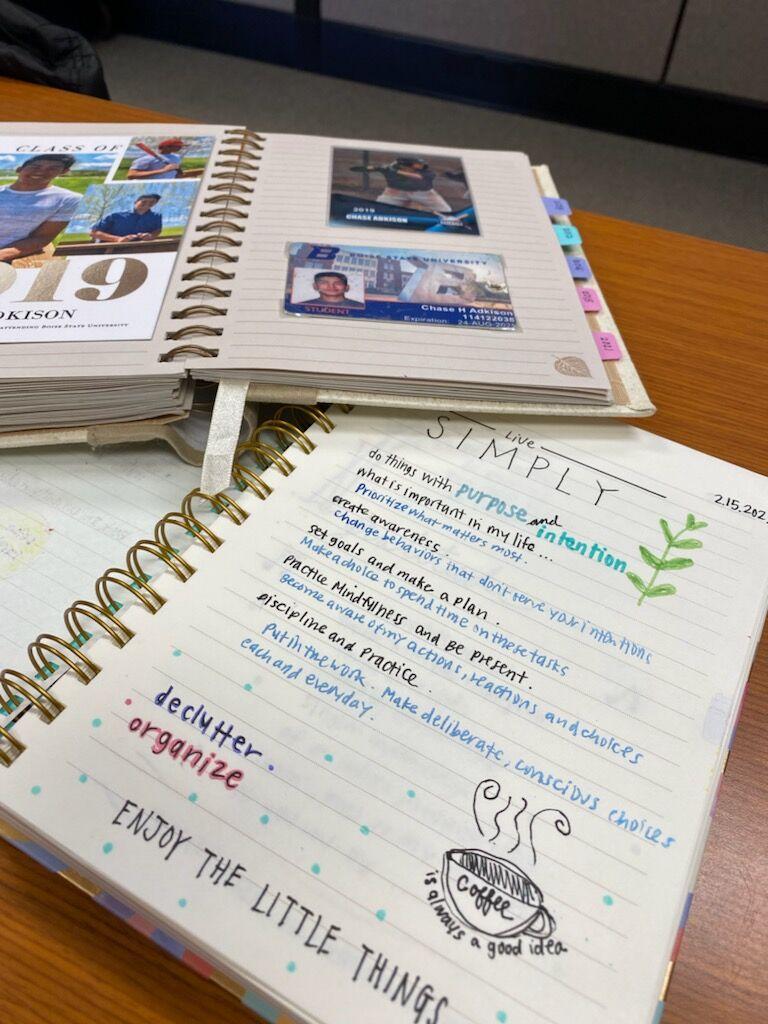 CLASS OF
2019
ADKISON
ATTENDING BOISE STATE UNIVERSITY
2019
CHASE ADKISON
BOISE STATE UNIVERSITY
STUDENT
Chase H Adkison
114122038
Expiration: 24-AUG-2023
Live
SIMPLY
2.15.202
do things with purpose and intention
what is important in my life...
Prioritize what matters most.
create awareness.
change behaviors that don't serve your intentions
set goals and make a plan.
Make a choice to spend time on these tasks
Practice Mindfulness and Be Present.
Become aware of my actions, reactions and choices
Discipline and Practice.
Put in the work. Make deliberate, conscious choices
each and everyday.
declutter.
organize
coffee
is always a good idea
ENJOY THE LITTLE THINGS